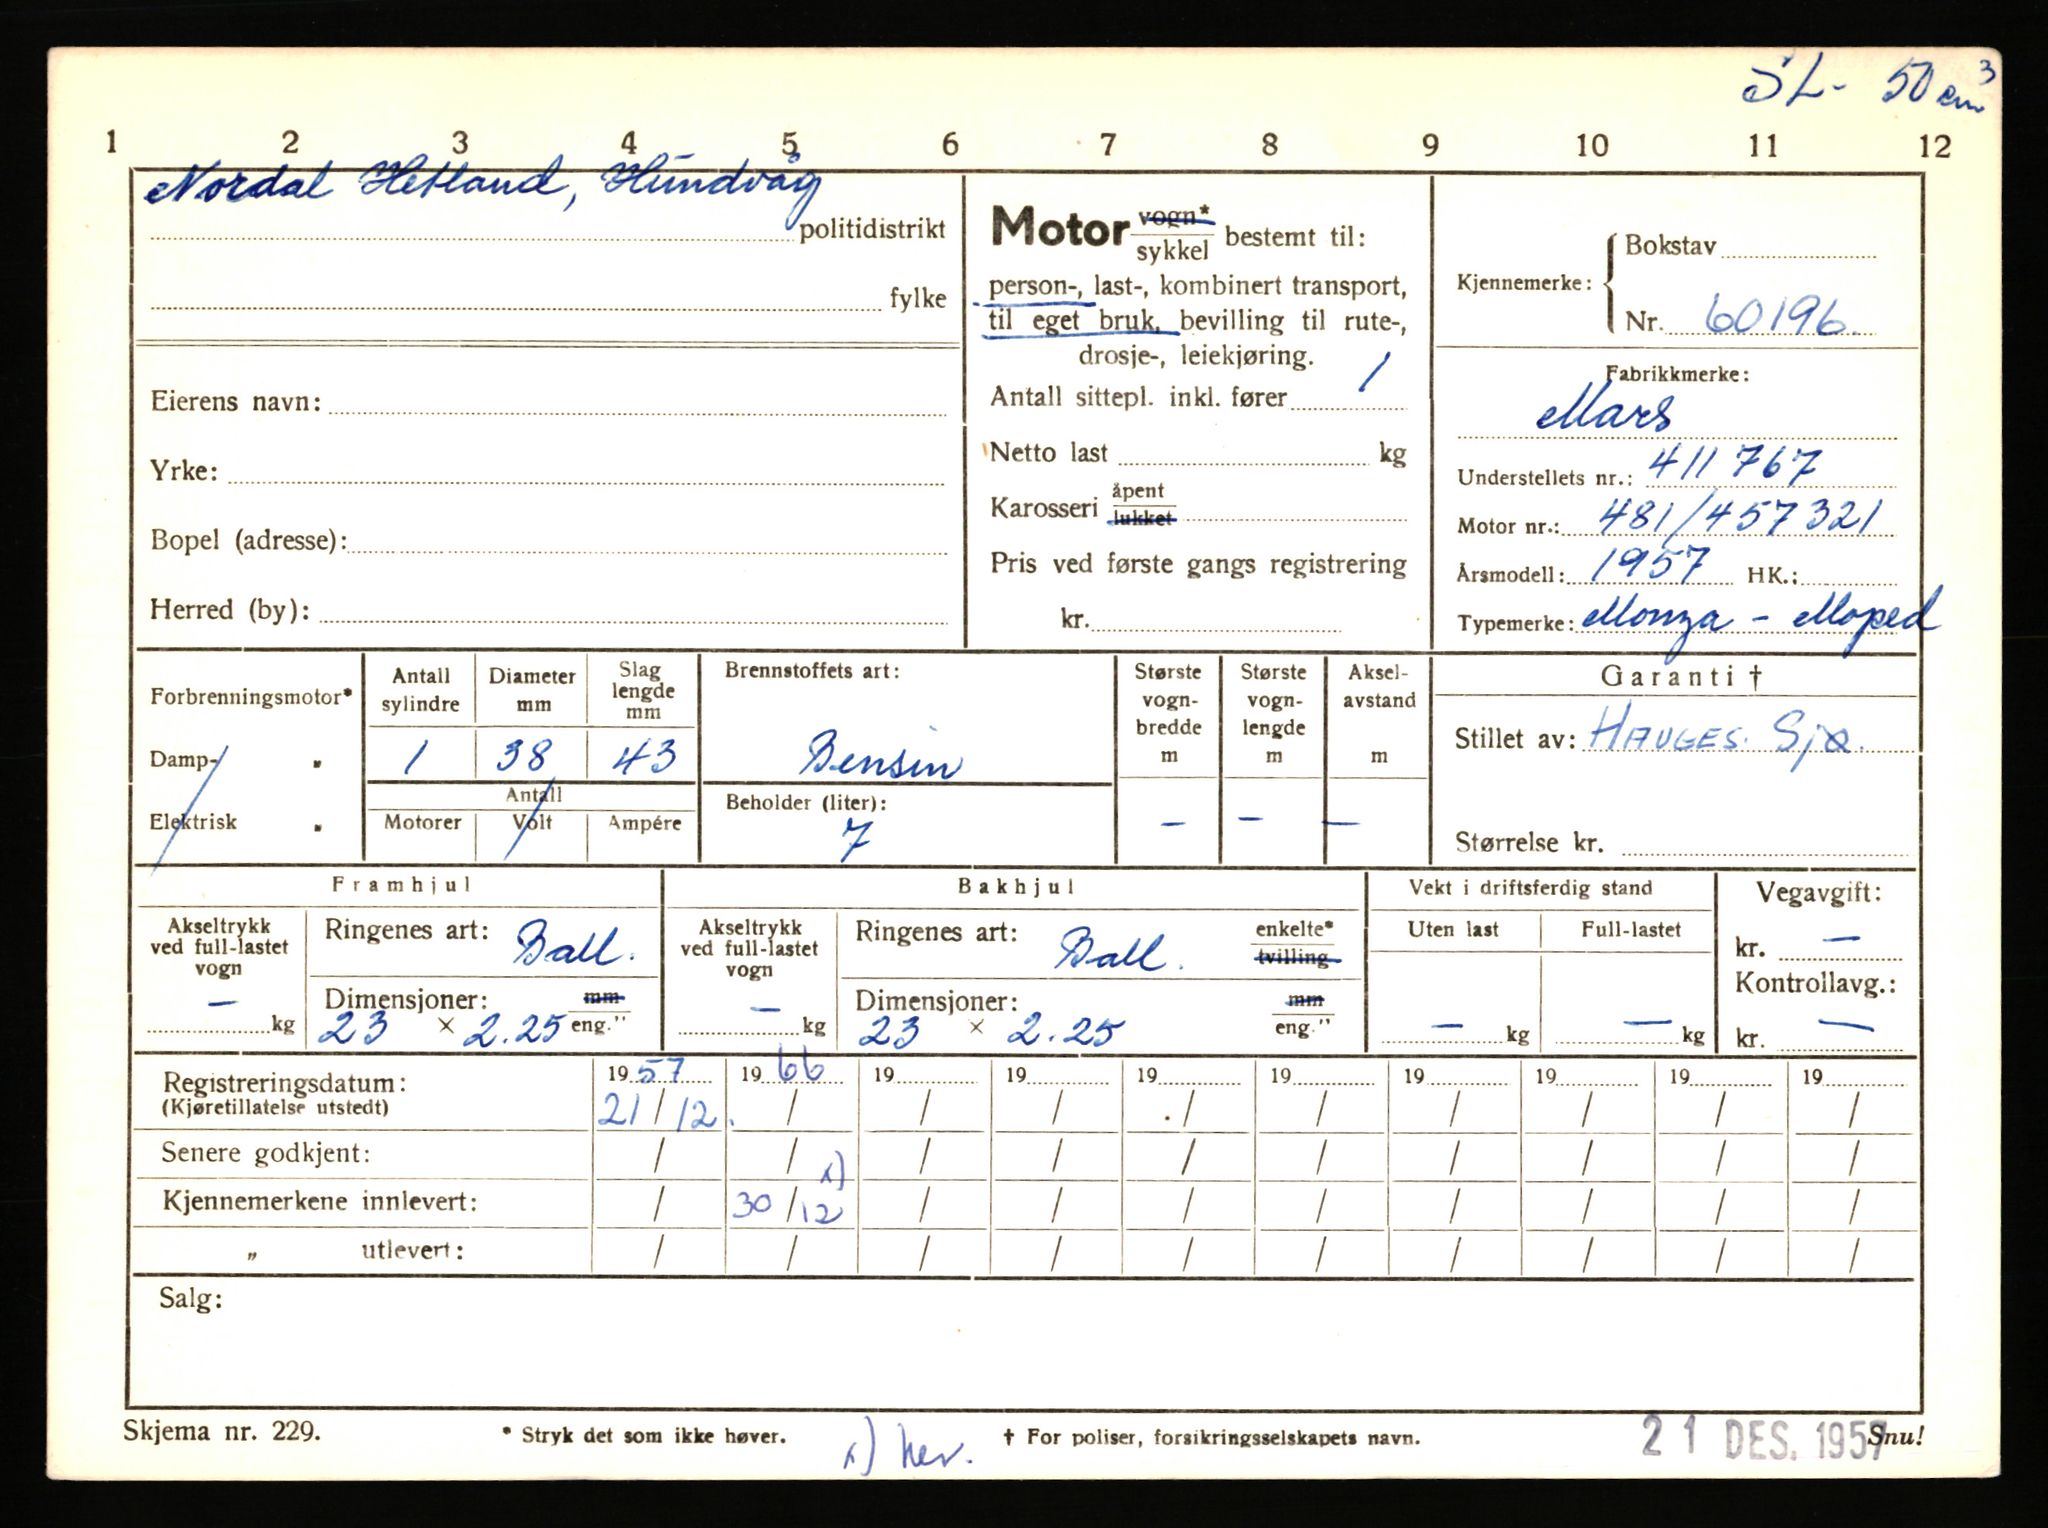 SL- 50 cm³
1 2 3 4 5 6 7 8 9 10 11 12
Nordal Hetland, Hundvåg
politidistrikt
fylke
Eierens navn:
Yrke:
Bopel (adresse):
Herred (by):
Motor vogn* / sykkel bestemt til:
person-, last-, kombinert transport,
til eget bruk, bevilling til rute-,
drosje-, leiekjøring.
Antall sittepl. inkl. fører 1
Netto last kg
Karosseri åpent / lukket
Pris ved første gangs registrering
kr.
Kjennemerke: Bokstav
Nr. 60196
Fabrikkmerke:
Mars
Understellets nr.: 411767
Motor nr.: 481/457321
Årsmodell: 1957 HK.:
Typemerke: Monza - Moped
Forbrenningsmotor*
Damp- „
Elektrisk „
Antall sylindre
1
Diameter mm
38
Slag lengde mm
43
Antall
Motorer Volt Ampére
Brennstoffets art:
Bensin
Beholder (liter):
7
Største vogn-bredde m
—
Største vogn-lengde m
—
Aksel-avstand m
—
Garanti †
Stillet av: HAUGES. Sjø.
Størrelse kr.
Framhjul
Akseltrykk ved full-lastet vogn
— kg
Ringenes art: Ball.
Dimensjoner: mm
23 × 2.25 eng."
Bakhjul
Akseltrykk ved full-lastet vogn
— kg
Ringenes art: Ball. enkelte* / tvilling
Dimensjoner: mm
23 × 2.25 eng."
Vekt i driftsferdig stand
Uten last Full-lastet
— kg — kg
Vegavgift:
kr. —
Kontrollavg.:
kr. —
Registreringsdatum: 1957 1966 19 19 19 19 19 19 19 19
(Kjøretillatelse utstedt) 21/12. / / / / / / / / /
Senere godkjent: / / / / / / / / / /
Kjennemerkene innlevert: / 30/12 x) / / / / / / / /
„ utlevert: / / / / / / / / / /
Salg:
Skjema nr. 229. * Stryk det som ikke høver. x) her. † For poliser, forsikringsselskapets navn. 21 DES. 1957 Snu!